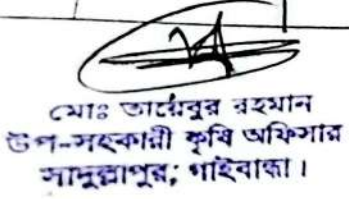 মোঃ তায়েবুর রহমান
উপ-সহকারী কৃষি অফিসার
সাদুল্লাপুর; গাইবান্ধা।